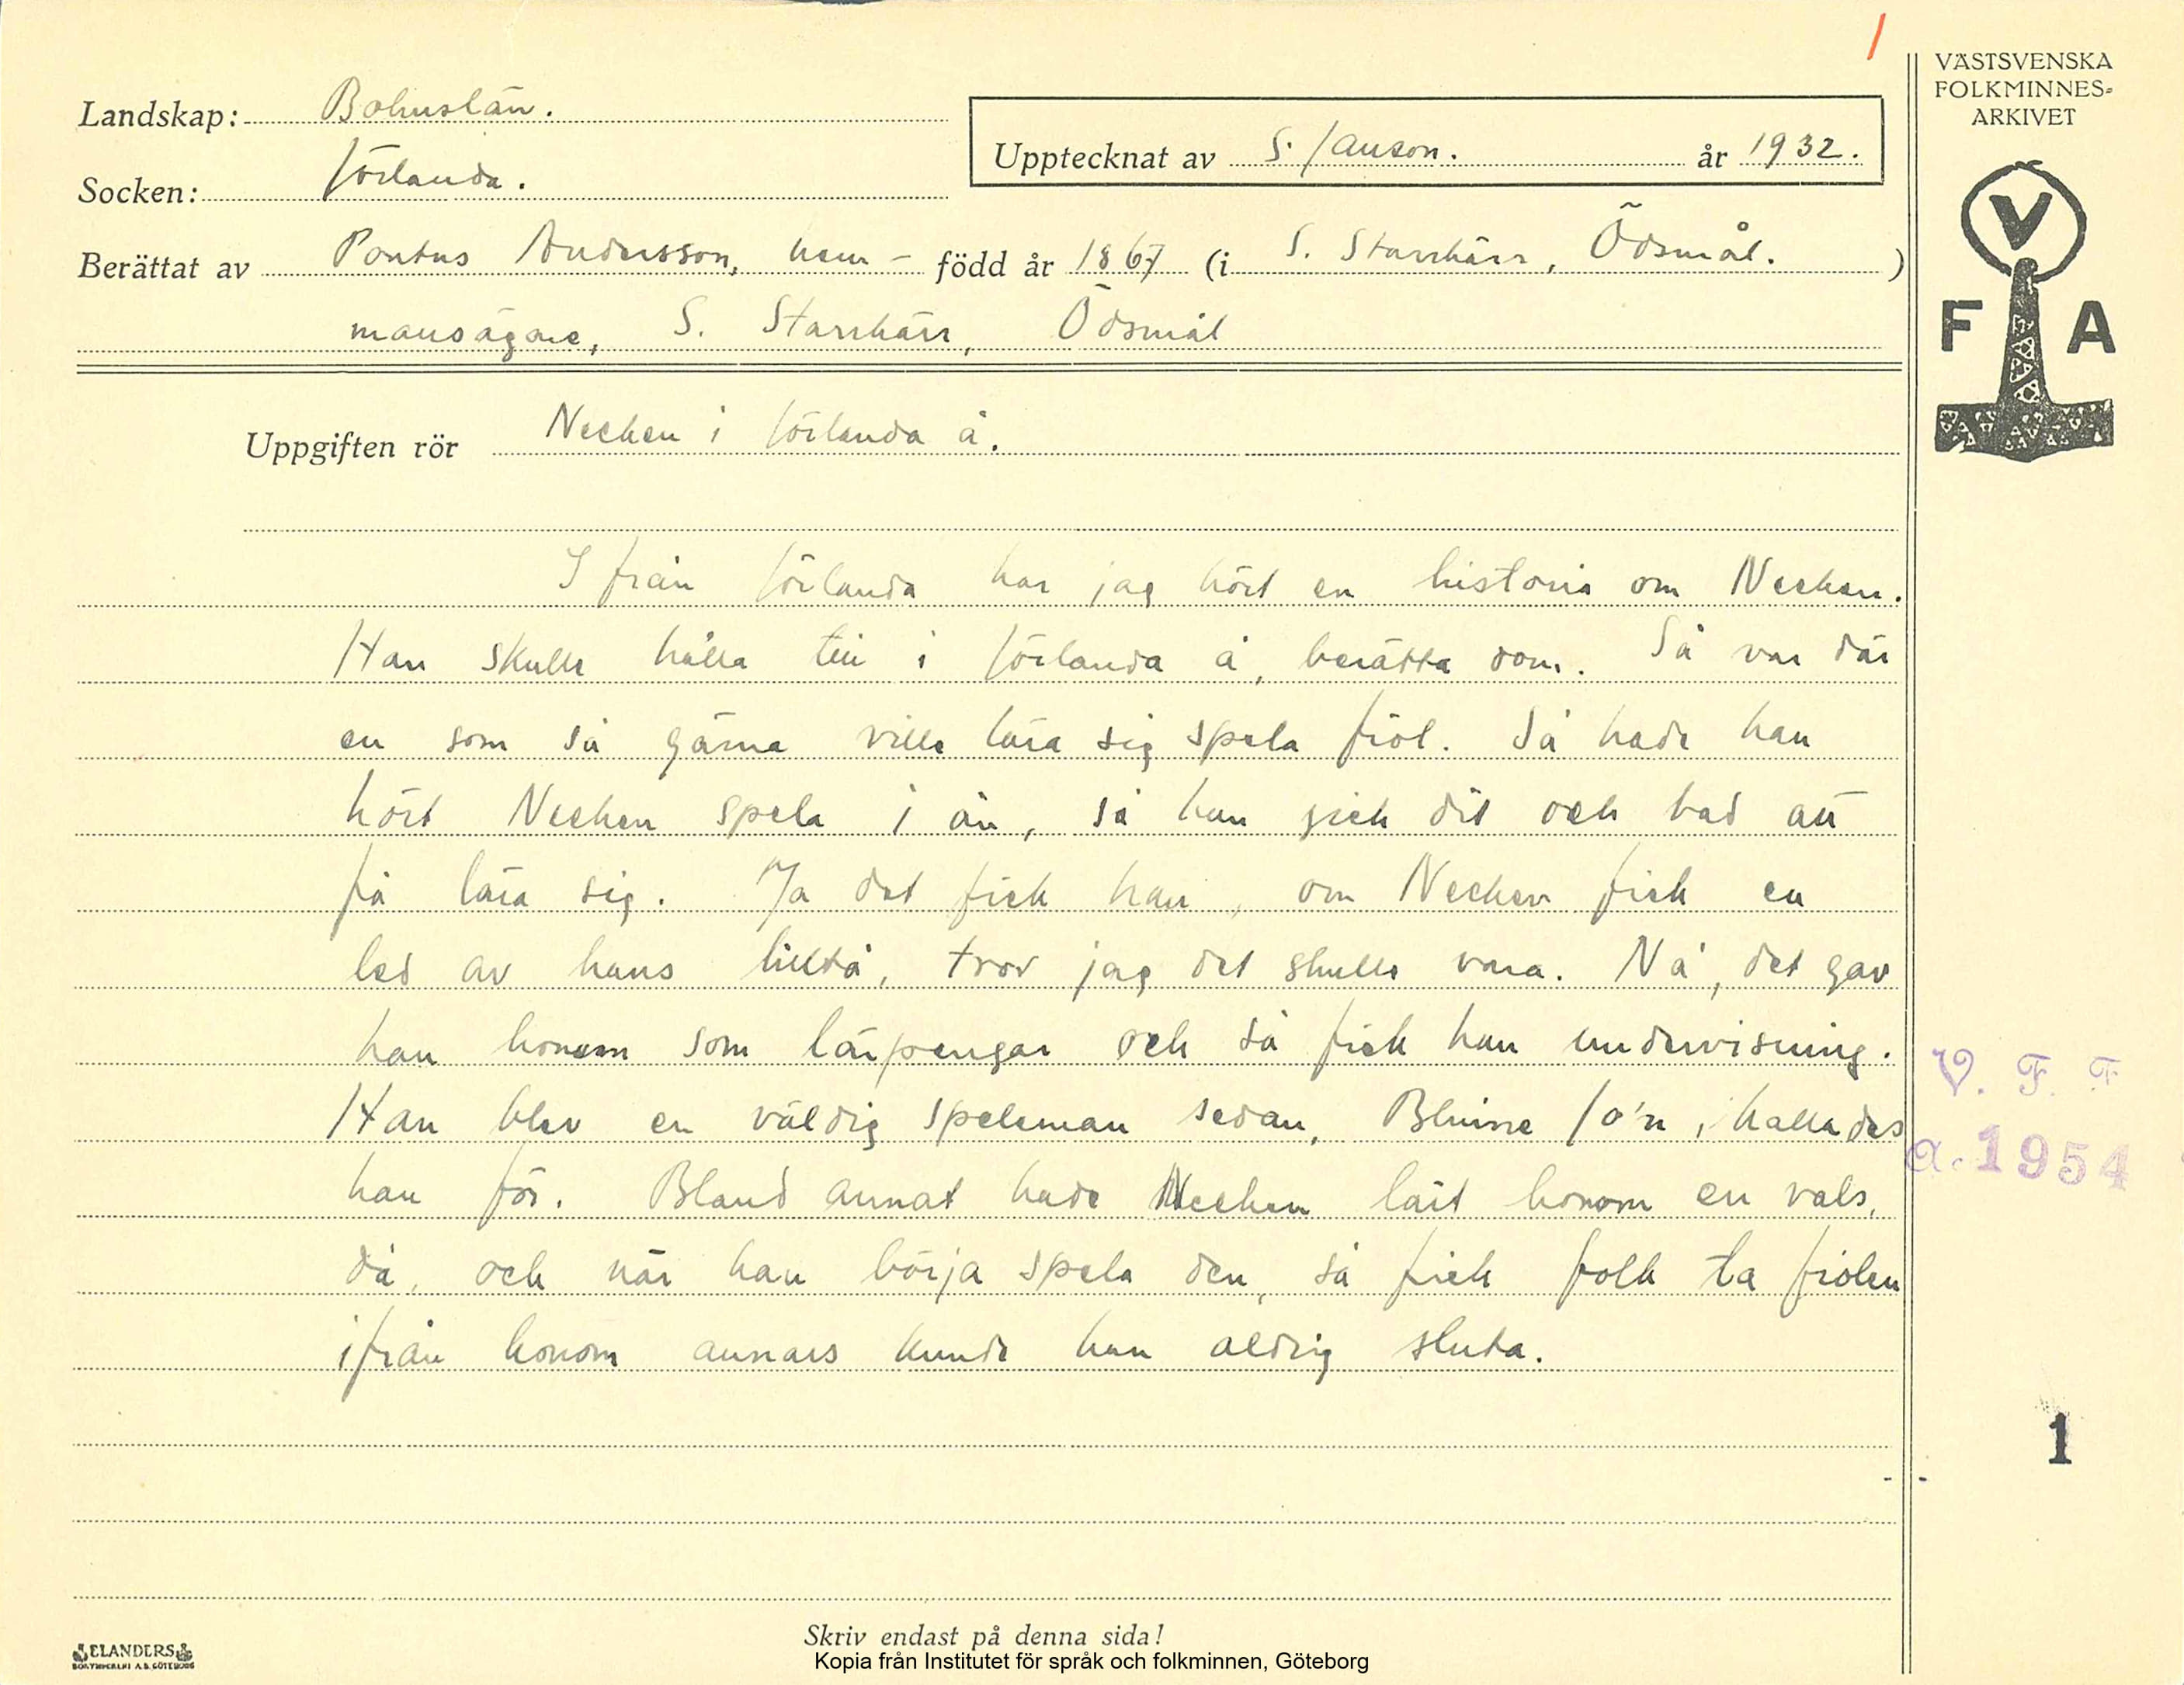 1
VÄSTSVENSKA
FOLKMINNES=
ARKIVET
Landskap: Bohuslän.
Upptecknat av S. Janson. år 1932.
Socken: Jörlanda.
Berättat av Pontus Andersson, hem- född år 1867 (i S. Starrkärr, Ödsmål. )
mansägare, S. Starrkärr, Ödsmål
V
F A
Uppgiften rör Necken i Jörlanda å.
I från Jörlanda har jag hört en historia om Necken.
Han skulle hålla till i Jörlanda å, berätta dom. Så var där
en som så gärna ville lära sig spela fiol. Så hade han
hört Necken spela i ån, så han gick dit och bad att
få lära sig. Ja det fick han, om Necken fick en
led av hans lilltå, tror jag det skulle vara. Nå, det gav
han honom som lärpengar och så fick han undervisning.
Han blev en väldig speleman sedan, Jo'n, kallades
han för. Bland annat hade Necken lärt honom en vals,
då, och när han börja spela den, så fick folk ta fiolen
ifrån honom annars kunde han aldrig sluta.
V. F. F
a. 1954
1
Skriv endast på denna sida!
ELANDERS
BOKTRYCKERI A.B. GÖTEBORG
Kopia från Institutet för språk och folkminnen, Göteborg